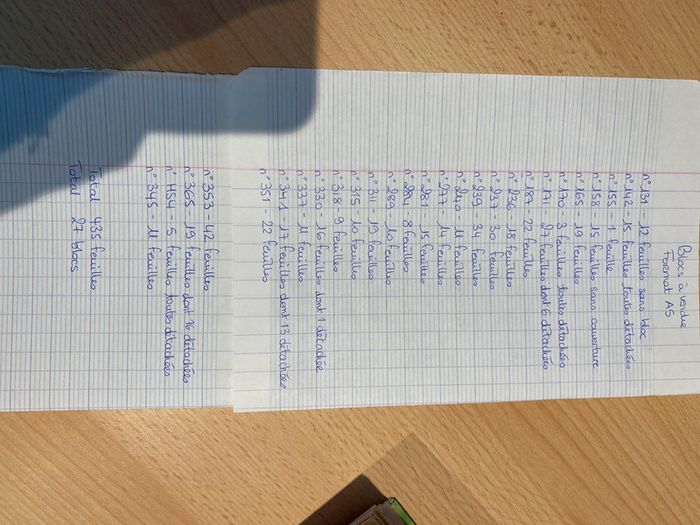 Blocs à vendre
Format A5
n° 131 - 12 feuilles sans bloc
n° 142 - 15 feuilles toutes détachées
n° 155 - 1 feuille
n° 158 - 15 feuilles sans couverture
n° 165 - 19 feuilles
n° 170 - 3 feuilles toutes détachées
n° 171 - 27 feuilles dont 6 détachées
n° 187 - 22 feuilles
n° 236 - 18 feuilles
n° 237 - 30 feuilles
n° 239 - 34 feuilles
n° 240 - 11 feuilles
n° 277 - 14 feuilles
n° 281 - 15 feuilles
n° 284 - 8 feuilles
n° 289 - 10 feuilles
n° 311 - 19 feuilles
n° 315 - 10 feuilles
n° 318 - 9 feuilles
n° 330 - 16 feuilles dont 1 détachée
n° 337 - 11 feuilles
n° 341 - 17 feuilles dont 13 détachées
n° 351 - 22 feuilles
n° 353 - 42 feuilles
n° 365 - 19 feuilles dont 16 détachées
n° HS4 - 5 feuilles toutes détachées
n° 345 - 11 feuilles
Total 435 feuilles
Total 27 blocs